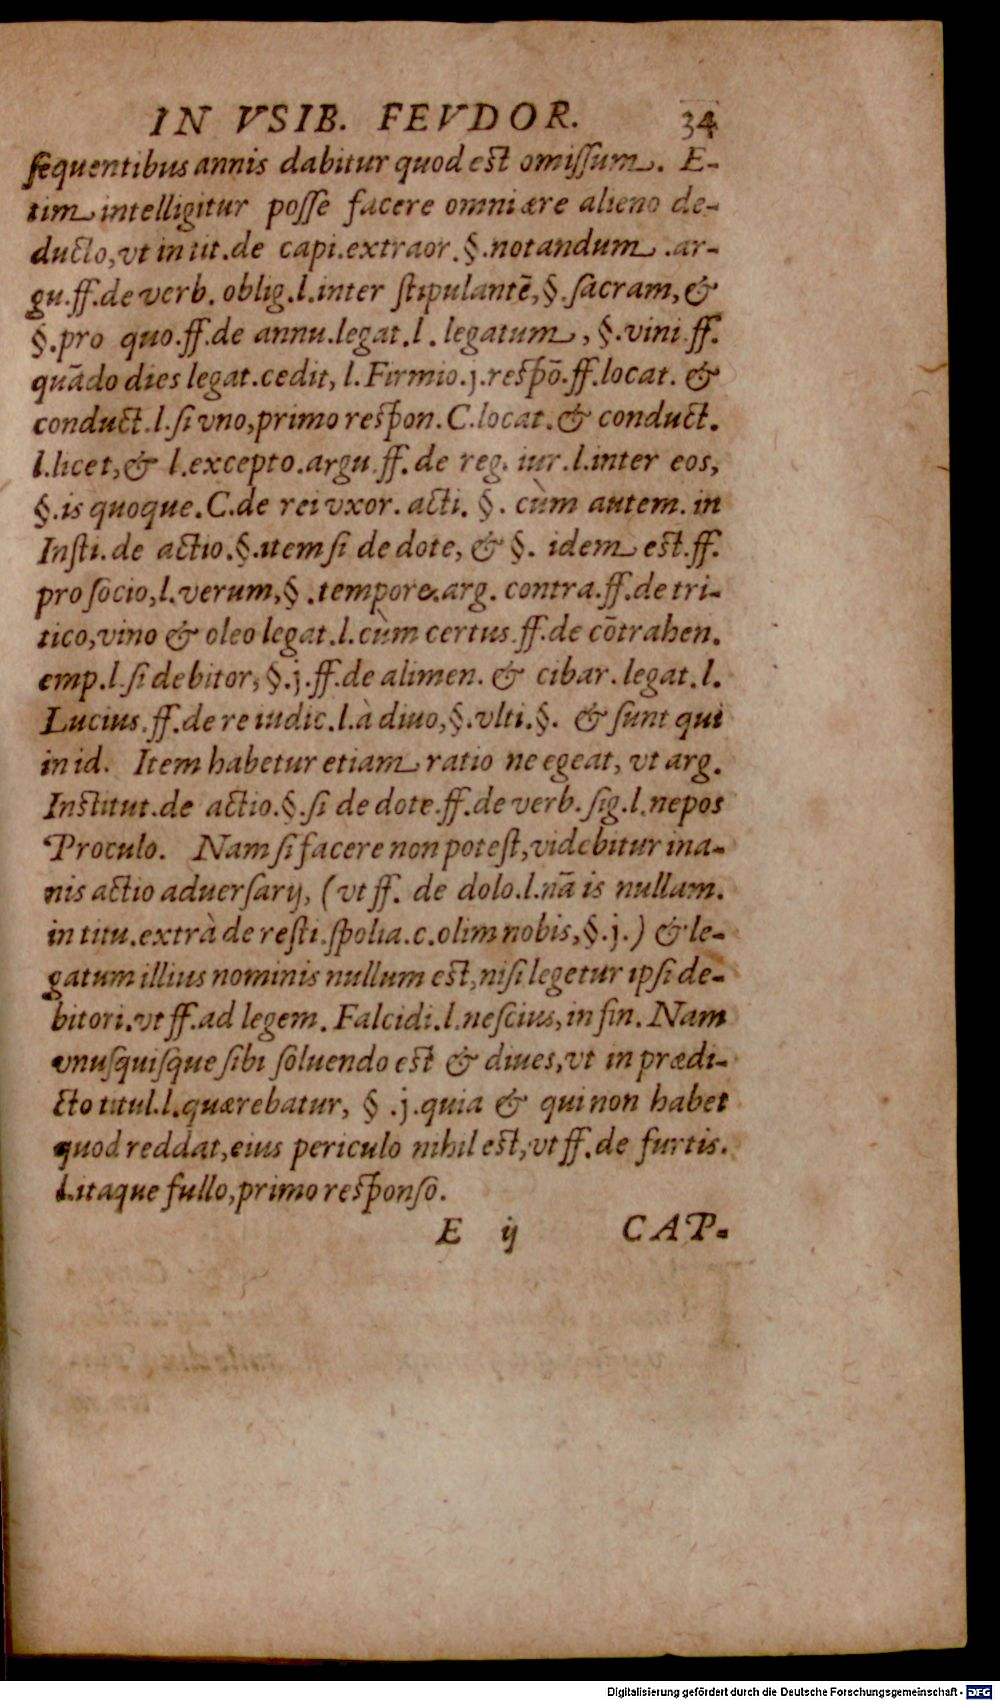 IN VSIB. FEVDOR. 34
sequentibus annis dabitur quod est omissum. E-
tim intelligitur posse facere omni ære alieno de-
ducto, vt in tit. de capi. extraor. §. notandum. ar-
gu. ff. de verb. oblig. l. inter stipulantē, §. sacram, &
§. pro quo. ff. de annu. legat. l. legatum, §. vini ff.
quādo dies legat. cedit, l. Firmio. j. respō. ff. locat. &
conduct. l. si vno, primo respon. C. locat. & conduct.
l. licet, & l. excepto. argu. ff. de reg. iur. l. inter eos,
§. is quoque. C. de rei vxor. acti. §. cùm autem. in
Insti. de actio. §. item si de dote, & §. idem est. ff.
pro socio, l. verum, §. tempore. arg. contra. ff. de tri-
tico, vino & oleo legat. l. cùm certus. ff. de cōtrahen.
emp. l. si debitor, §. j. ff. de alimen. & cibar. legat. l.
Lucius. ff. de re iudic. l. à diuo, §. vlti. §. & sunt qui
in id. Item habetur etiam ratio ne egeat, vt arg.
Institut. de actio. §. si de dote. ff. de verb. sig. l. nepos
Proculo. Nam si facere non potest, videbitur ina-
nis actio aduersarij, (vt ff. de dolo. l. nā is nullam.
in titu. extrà de resti. spolia. c. olim nobis, §. j.) & le-
gatum illius nominis nullum est, nisi legetur ipsi de-
bitori. vt ff. ad legem. Falcidi. l. nescius, in fin. Nam
vnusquisque sibi soluendo est & diues, vt in prædi-
cto titul. l. quærebatur, §. j. quia & qui non habet
quod reddat, eius periculo nihil est, vt ff. de furtis.
l. itaque fullo, primo responso.
E ij CAP-
Digitalisierung gefördert durch die Deutsche Forschungsgemeinschaft - DFG